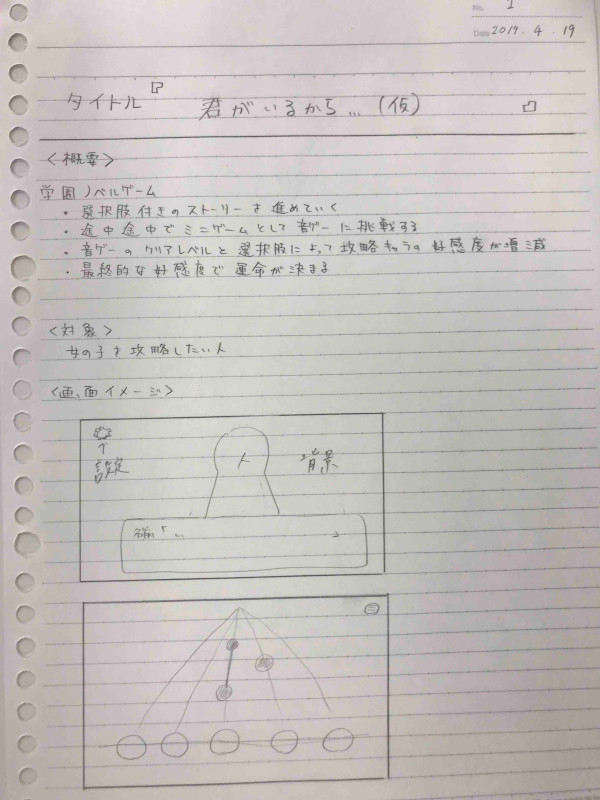 No. 1
Date 2019. 4. 19
タイトル『君がいるから…(仮)』
<概要>
学園ノベルゲーム
・選択肢付きのストーリーを進めていく
・途中途中でミニゲームとして音ゲーに挑戦する
・音ゲーのクリアレベルと選択肢によって攻略キャラの好感度が増減
・最終的な好感度で運命が決まる
<対象>
女の子を攻略したい人
<画面イメージ>
↑
設定
人
背景
名前「…
」